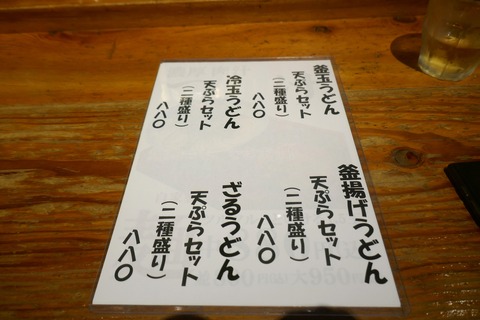 釜玉うどん
天ぷらセット
（二種盛り）
八八〇
冷玉うどん
天ぷらセット
（二種盛り）
八八〇
釜揚げうどん
天ぷらセット
（二種盛り）
八八〇
ざるうどん
天ぷらセット
（二種盛り）
八八〇